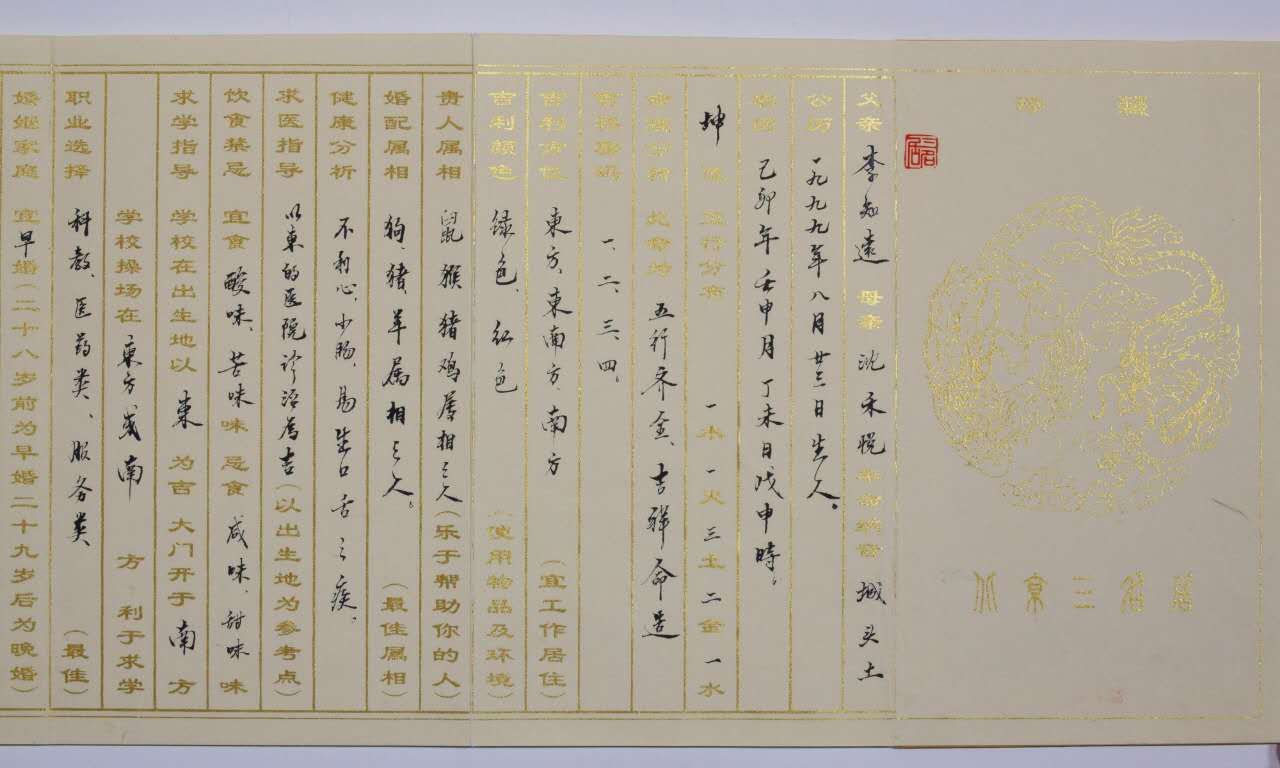 珍藏
北京三名居
父亲 李知遠 母亲 沈禾悦 本命纳音 城头土
公历 一九九九年八月廿三日生人。
农历 己卯年壬申月丁未日戊申時。
坤 造 五行分布 一木一火三土二金一水
此命局 五行齐全、吉祥命造
一、二、三、四、
吉利方位 東方、東南方南方（宜工作居住）
吉利颜色 绿色、红色（使用物品及环境）
贵人属相 鼠猴猪鸡属相之人（乐于帮助你的人）
婚配属相 狗、猪、羊属相之人。（最佳属相）
健康分析 不利心、小肠、易生口舌之疾、
求医指导 以東的医院诊治為吉（以出生地为参考点）
饮食禁忌 宜食 酸味、苦味 味 忌食 咸味、甜味 味
求学指导 学校在出生地以 東 为吉 大门开于 南 方
学校操场在 東方或南 方 利于求学
职业选择 科教、医药类、服务类（最佳）
婚姻家庭 宜早婚（二十八岁前为早婚二十九岁后为晚婚）